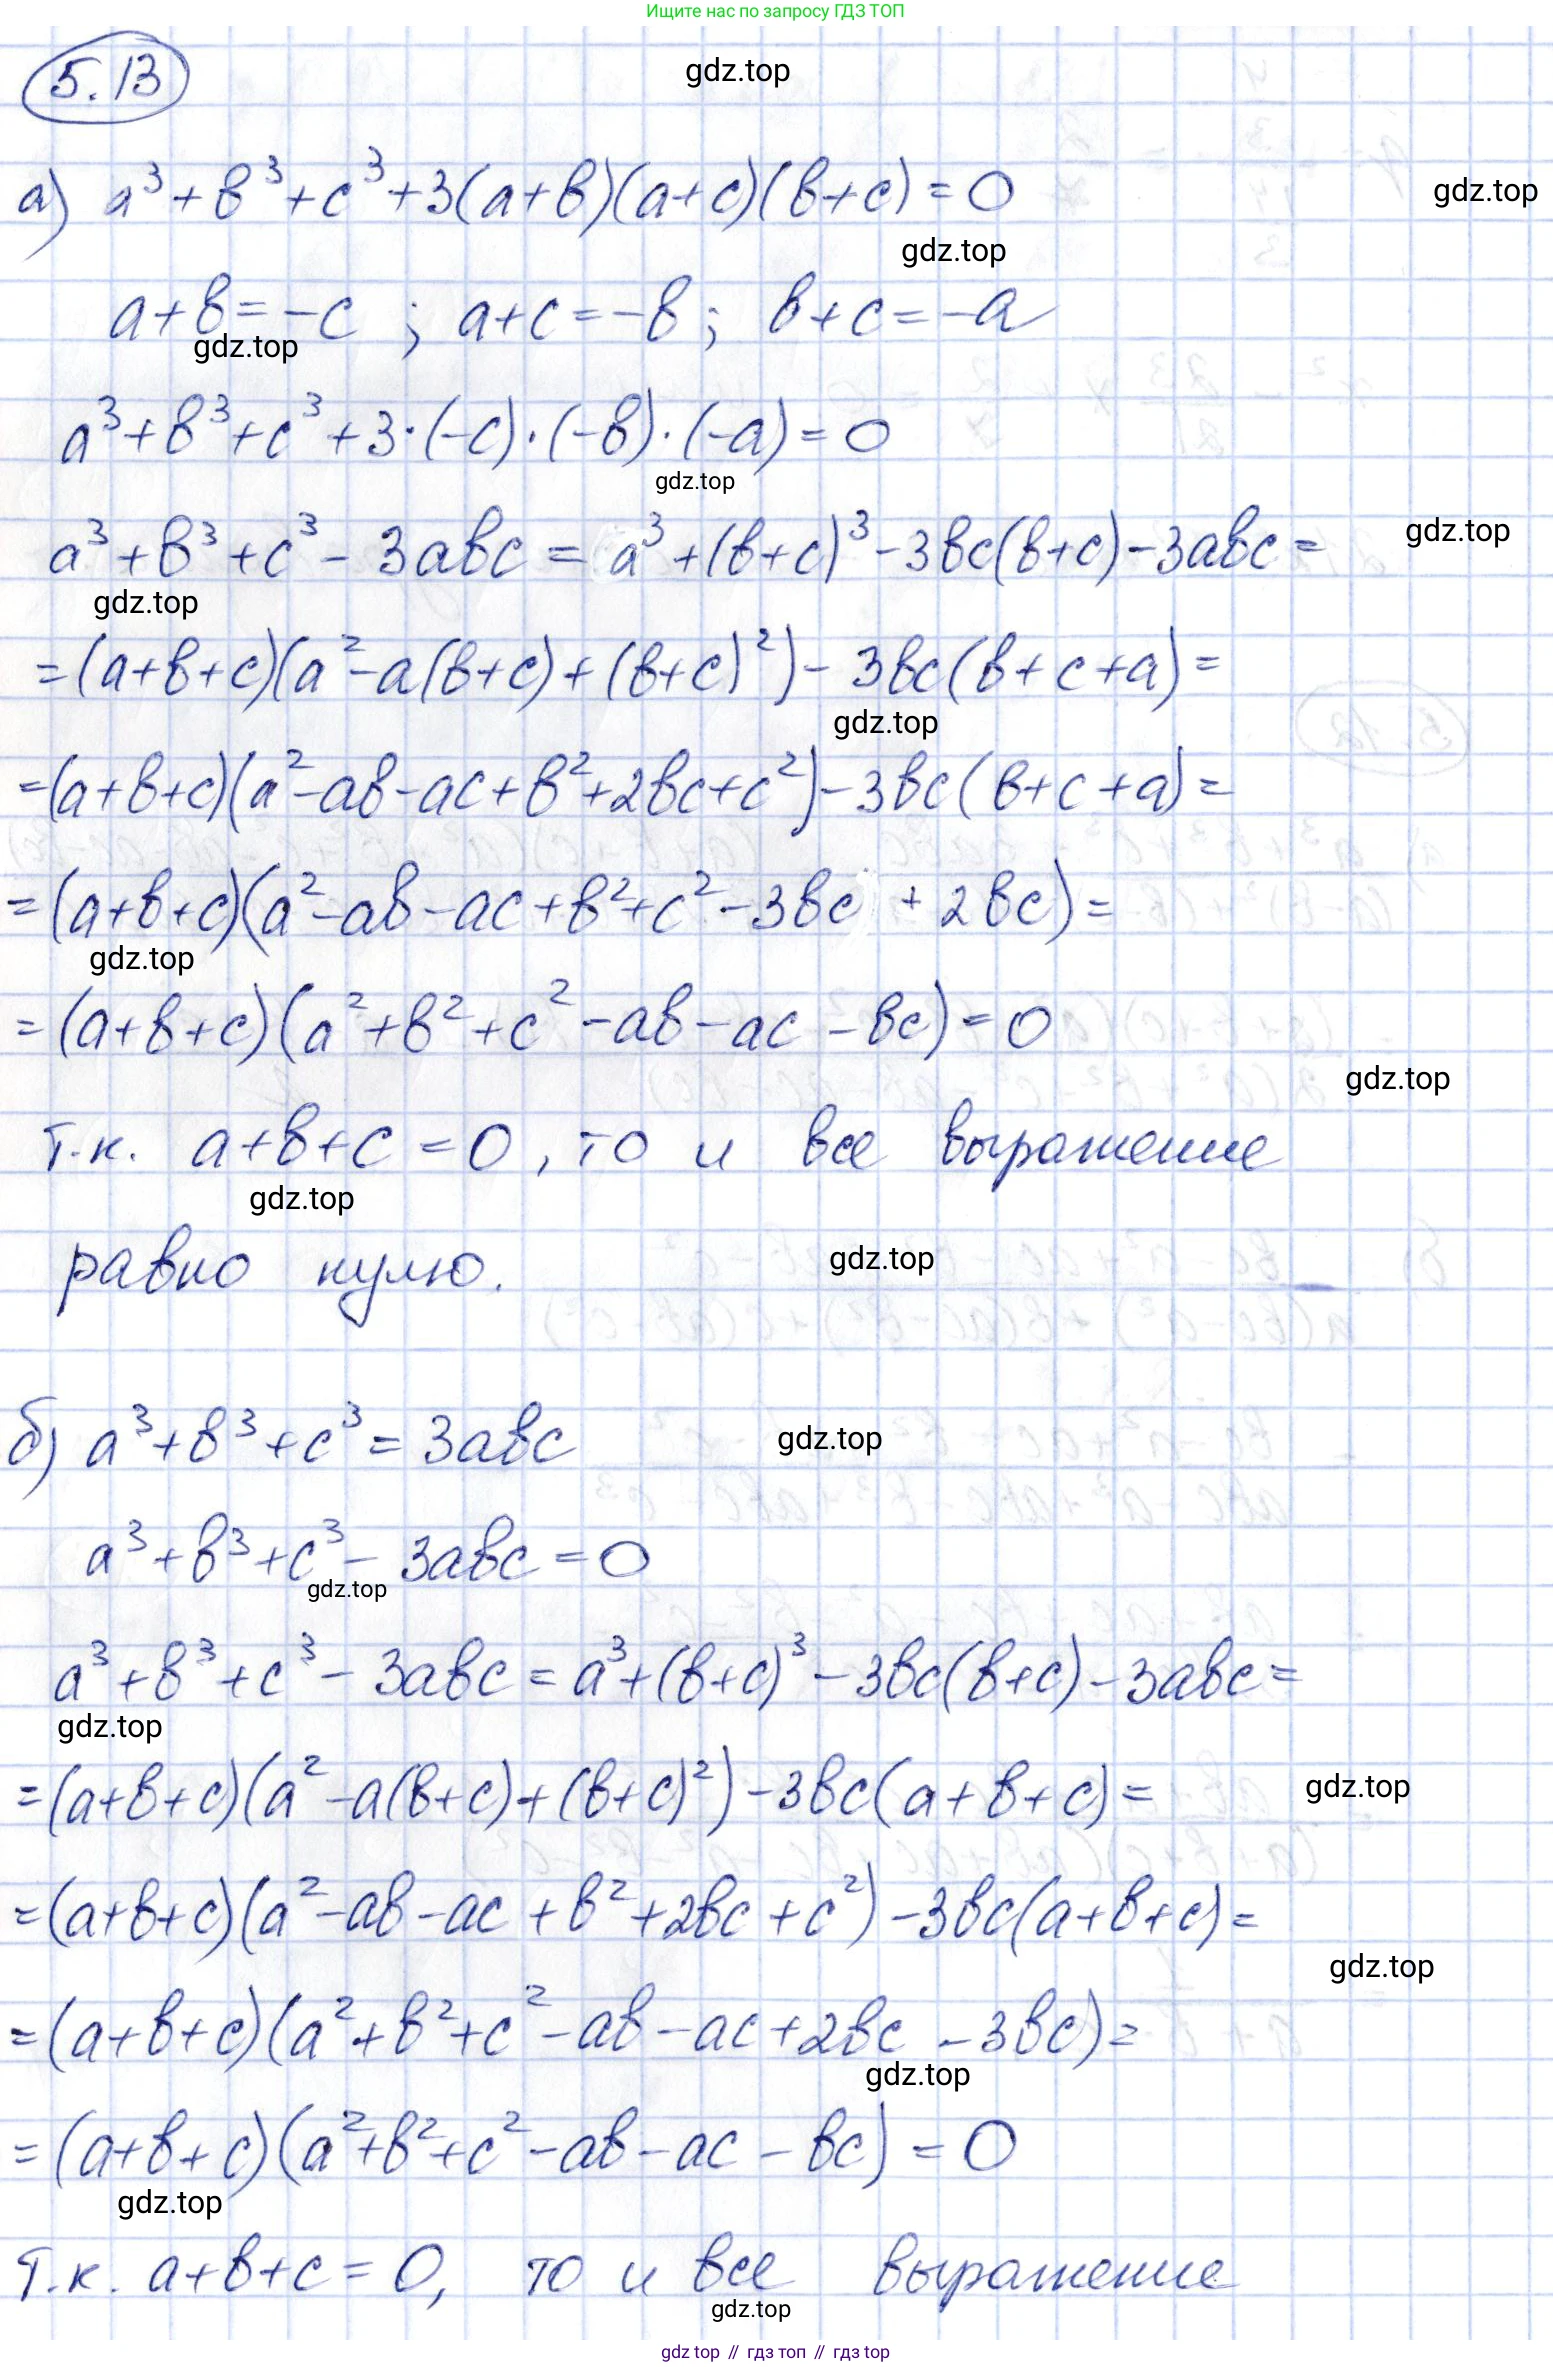 Ищите нас по запросу ГДЗ ТОП
5.13
gdz.top
а) a³+b³+c³+3(a+b)(a+c)(b+c)=0
gdz.top
gdz.top
a+b=-c ; a+c=-b; b+c=-a
gdz.top
a³+b³+c³+3·(-c)·(-b)·(-a)=0
gdz.top
a³+b³+c³-3abc = a³+(b+c)³-3bc(b+c)-3abc=
gdz.top
gdz.top
=(a+b+c)(a²-a(b+c)+(b+c)²)-3bc(b+c+a)=
gdz.top
=(a+b+c)(a²-ab-ac+b²+2bc+c²)-3bc(b+c+a)=
=(a+b+c)(a²-ab-ac+b²+c²-3bc+2bc)=
gdz.top
=(a+b+c)(a²+b²+c²-ab-ac-bc)=0
gdz.top
т.к. a+b+c=0, то и все выражение
gdz.top
равно нулю.
gdz.top
б) a³+b³+c³=3abc
gdz.top
a³+b³+c³-3abc=0
gdz.top
a³+b³+c³-3abc=a³+(b+c)³-3bc(b+c)-3abc=
gdz.top
=(a+b+c)(a²-a(b+c)+(b+c)²)-3bc(a+b+c)=
gdz.top
=(a+b+c)(a²-ab-ac+b²+2bc+c²)-3bc(a+b+c)=
gdz.top
=(a+b+c)(a²+b²+c²-ab-ac+2bc-3bc)=
gdz.top
=(a+b+c)(a²+b²+c²-ab-ac-bc)=0
gdz.top
т.к. a+b+c=0, то и все выражение
gdz.top
gdz top // гдз топ // гдз top